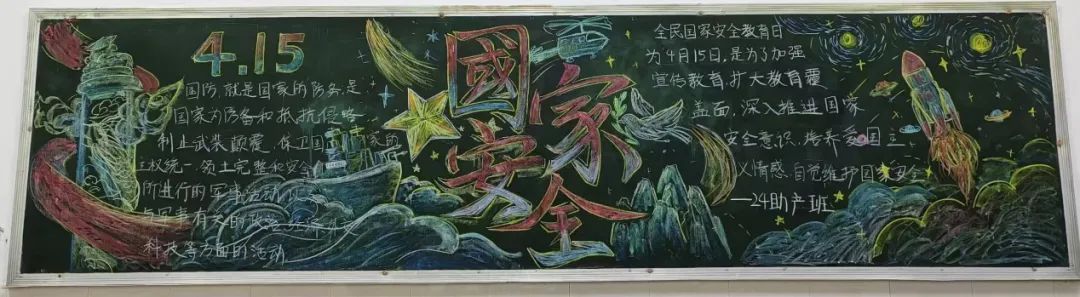 4.15
国防,就是国家的防务,是
国家为防备和抵抗侵略,
制止武装颠覆,保卫国家的
主权统一领土完整和安全
所进行的军事活动
与军事有关的政治
科技等方面的活动
國家安全
全民国家安全教育日
为4月15日,是为了加强
宣传教育,扩大教育覆
盖面,深入推进国家
安全意识,培养爱国主
义情感,自觉维护国家安全
—24助产班